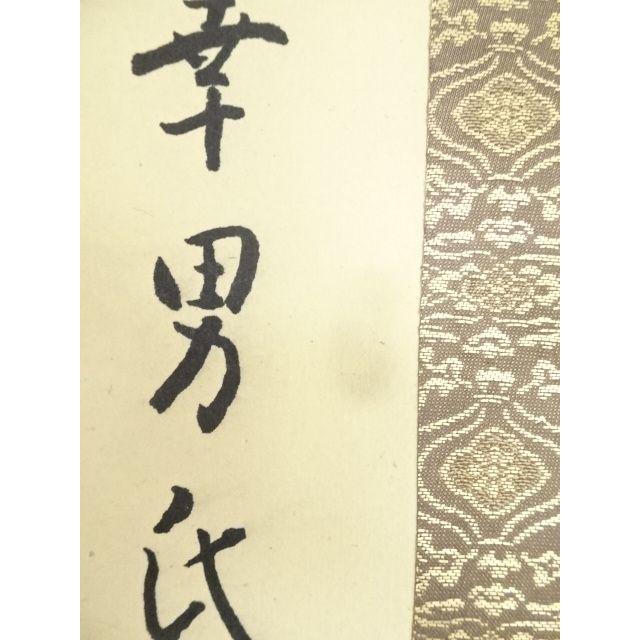 幸男氏